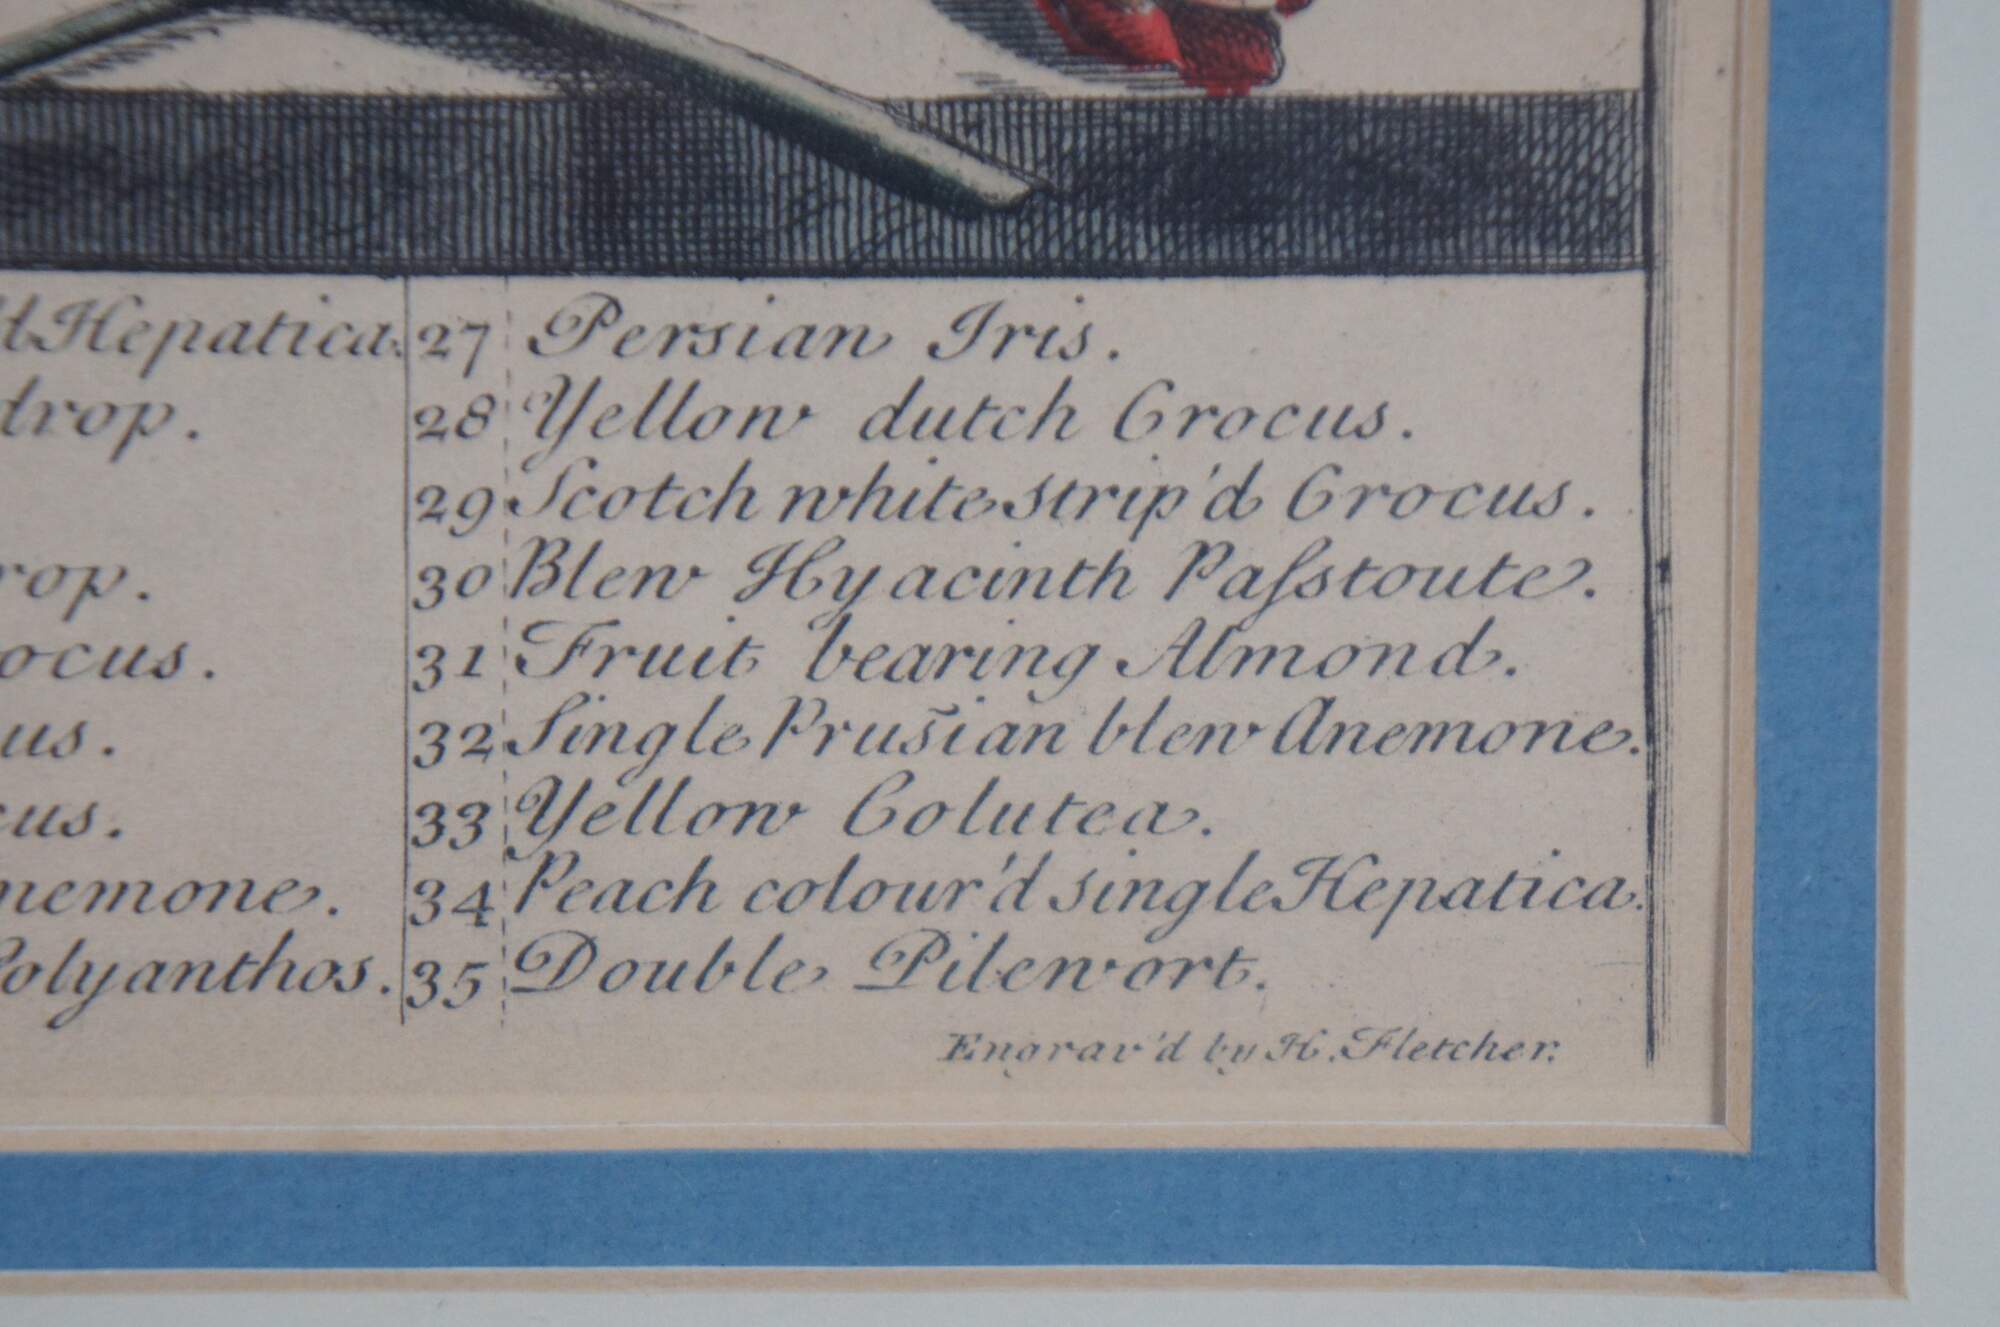 Hepatica. 27 Persian Iris.
drop. 28 Yellow dutch Crocus.
29 Scotch white strip'd Crocus.
rop. 30 Blew Hyacinth Paſstoute.
ocus. 31 Fruit bearing Almond.
us. 32 Single Prusian blew Anemone.
cus. 33 Yellow Colutea.
nemone. 34 Peach colour'd single Hepatica.
Polyanthos. 35 Double Pilewort.
Engrav'd by H. Fletcher.